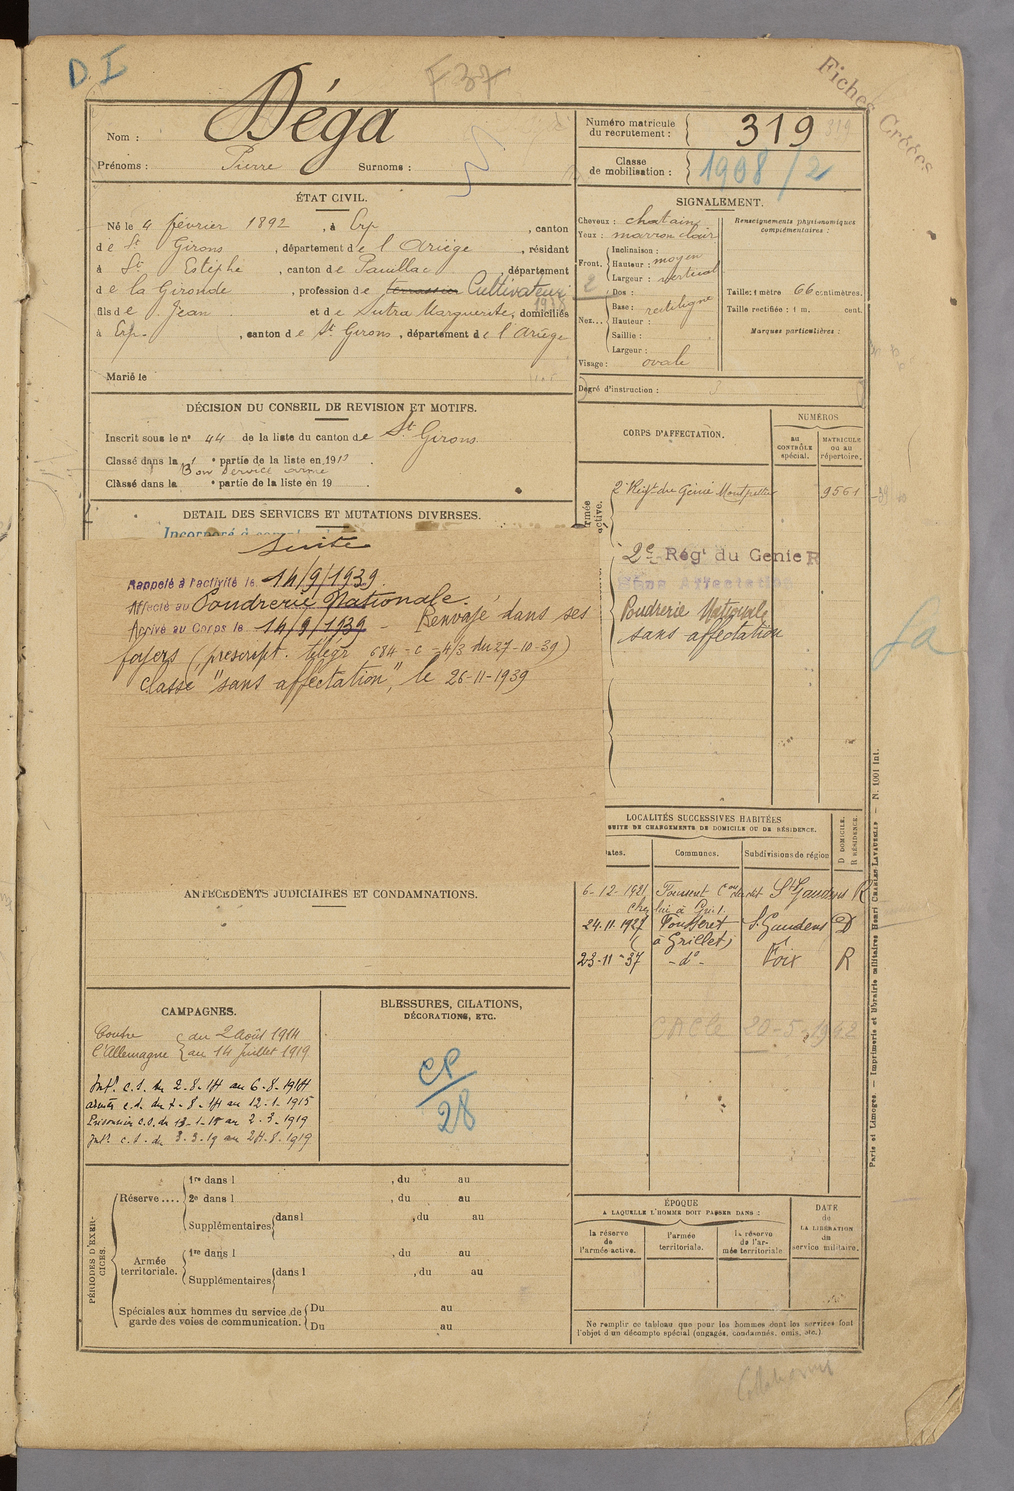 D. I
F 37
Fiches Créées
Nom : Déga
Prénoms : Pierre Surnoms :
Numéro matricule du recrutement : 319
Classe de mobilisation : 1908/2
ÉTAT CIVIL.
Né le 4 février 1892, à Erp, canton
de St Girons, département de l'Ariège, résidant
à St Estèphe, canton de Pauillac, département
de la Gironde, profession de terrassier Cultivateur
1938
fils de Jean et de Sutra Marguerite, domiciliés
à Erp, canton de St Girons, département de l'Ariège
Marié le
SIGNALEMENT.
Cheveux : chatain
Yeux : marron clair
Front. Inclinaison :
Hauteur : moyen
Largeur : vertical
2
Nez... Dos :
Base : rectiligne
Hauteur :
Saillie :
Largeur :
Visage : ovale
Renseignements physionomiques complémentaires :
Taille : 1 mètre 66 centimètres.
Taille rectifiée : 1 m. cent.
Marques particulières :
Degré d'instruction : 3
DÉCISION DU CONSEIL DE REVISION ET MOTIFS.
Inscrit sous le n° 44 de la liste du canton de St Girons
Classé dans la 1e partie de la liste en 191
Bon Service armé
Classé dans la e partie de la liste en 19 .
DETAIL DES SERVICES ET MUTATIONS DIVERSES.
Incorporé à compt
Suite
Rappelé à l'activité le 14/9/1939.
Affecté au Poudrerie Nationale.
Arrivé au Corps le 14/9/1939 - Renvoyé dans ses
foyers (prescript. télégr 684-c-4/3 du 27-10-39)
Classé "sans affectation", le 26-11-1939
CORPS D'AFFECTATION.
NUMÉROS
au CONTRÔLE spécial.
MATRICULE ou au répertoire.
Armée active.
2e Régt du Génie Montpellier 9561
2e Régt du Génie R
Sans Affectation
Poudrerie Nationale
sans affectation
LOCALITÉS SUCCESSIVES HABITÉES
SUITE DE CHANGEMENTS DE DOMICILE OU DE RÉSIDENCE.
Dates. Communes. Subdivisions de région D DOMICILE. R RÉSIDENCE.
6-12-1921 St Gaudens R
24.11.1927 Fousseret St Gaudens D
à Grillet
23-11-37 -d°- Foix R
20-5-1942
ANTÉCÉDENTS JUDICIAIRES ET CONDAMNATIONS.
CAMPAGNES.
Contre l'Allemagne du 2 Août 1914
au 14 Juillet 1919
Intr. c.s. du 2-8-14 au 6-8-1914
armées c.d. du 7-8-14 au 12-1-1915
Prisonnier c.s. du 13-1-15 au 2-3-1919
Intr. c.s. du 3-3-19 au 24-8-1919
BLESSURES, CITATIONS,
DÉCORATIONS, ETC.
CP
28
PÉRIODES D'EXERCICES.
Réserve .... 1re dans l , du au
2e dans l , du au
Supplémentaires dans l , du au
Armée territoriale. 1re dans l , du au
Supplémentaires dans l , du au
Spéciales aux hommes du service de garde des voies de communication. Du au
Du au
ÉPOQUE
A LAQUELLE L'HOMME DOIT PASSER DANS :
la réserve de l'armée active.
l'armée territoriale.
la réserve de l'armée territoriale
DATE de LA LIBÉRATION du service militaire.
Ne remplir ce tableau que pour les hommes dont les services font
l'objet d'un décompte spécial (engagés, condamnés, omis, etc.)
Paris et Limoges. — Imprimerie et librairie militaires Henri CHARLES-LAVAUZELLE — N. 1001 Int.